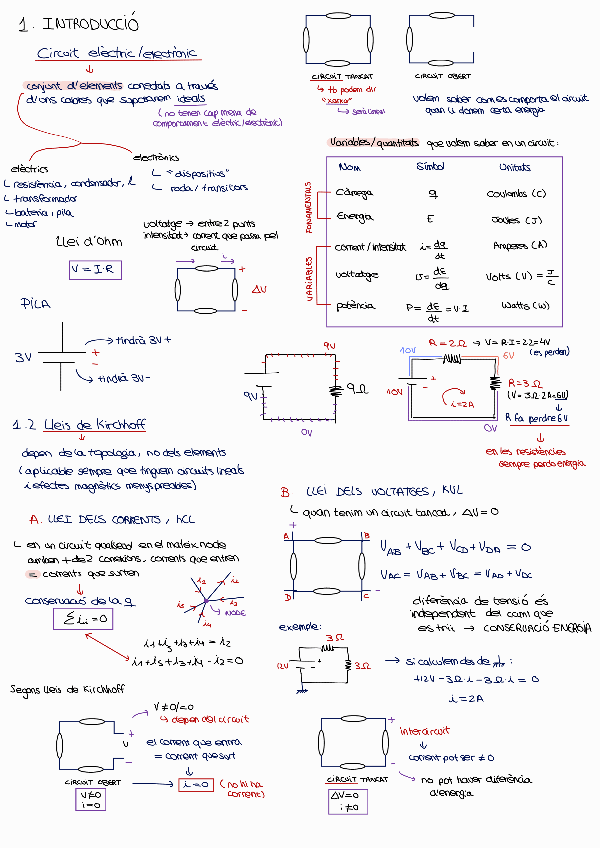 1. INTRODUCCIÓ
Circuit elèctric/electrònic
conjunt d'elements conectats a través
d'uns cables que suposarem ideals
(no tenen cap mena de
comportament elèctric/electrònic)
elèctrics
resistència, condensador, L
transformador
bateria, pila
motor
electrònics
"dispositius"
díode/transistors
CIRCUIT TANCAT
tb podem dir
"xarxa"
CIRCUIT OBERT
volem saber com es comporta el circuit
quan li donem certa energia
Variables/quantitats que volem saber en un circuit:
Nom Símbol Unitats
FONAMENTALS
Càrrega q Coulombs (C)
Energia E Joules (J)
VARIABLES
corrent/intensitat i = dq/dt Amperes (A)
voltatge v = dE/dq Volts (V) = J/C
potència P = dE/dt = v·i Watts (W)
voltatge → entre 2 punts
intensitat → corrent que passa pel
circuit
Llei d'Ohm
V = I·R
+
ΔV
-
PILA
3V
+ tindrà 3V+
- tindrà 3V-
9V
9V
9Ω
0V
R = 2Ω → V = R·I = 2·2 = 4V
(es perden)
10V
6V
10V
+
-
i = 2A
R = 3Ω
(V = 3Ω·2A = 6V)
R fa perdre 6V
0V
en les resistències
sempre perdo energia
1.2 Lleis de Kirchhoff
depèn de la topologia, no dels elements
(aplicable sempre que tinguem circuits lineals
i efectes magnètics menyspreables)
A. LLEI DELS CORRENTS, KCL
en un circuit qualsevol en el mateix node
arriben + de 2 conexions, corrents que entren
= corrents que surten
conservació de la q
Σ i = 0
i₂
i₁
i₅
i₃
i₄
NODE
i₁ + i₅ + i₃ + i₄ = i₂
i₁ + i₅ + i₃ + i₄ - i₂ = 0
B LLEI DELS VOLTATGES, KVL
quan tenim un circuit tancat, ΔV = 0
+
A B
D C
-
V_AB + V_BC + V_CD + V_DA = 0
V_AC = V_AB + V_BC = V_AD + V_DC
diferència de tensió és
independent del camí que
es triï → CONSERVACIÓ ENERGIA
exemple:
3Ω
12V
+
-
3Ω
→ si calculem des de :
+12V - 3Ω·i - 3Ω·i = 0
i = 2A
Segons lleis de Kirchhoff
V ≠ 0/=0
depèn del circuit
+
V
-
el corrent que entra
= corrent que surt
CIRCUIT OBERT
V ≠ 0
i = 0
i = 0 (no hi ha
corrent)
+
-
intercircuit
corrent pot ser ≠ 0
no pot haver diferència
d'energia
CIRCUIT TANCAT
ΔV = 0
i ≠ 0